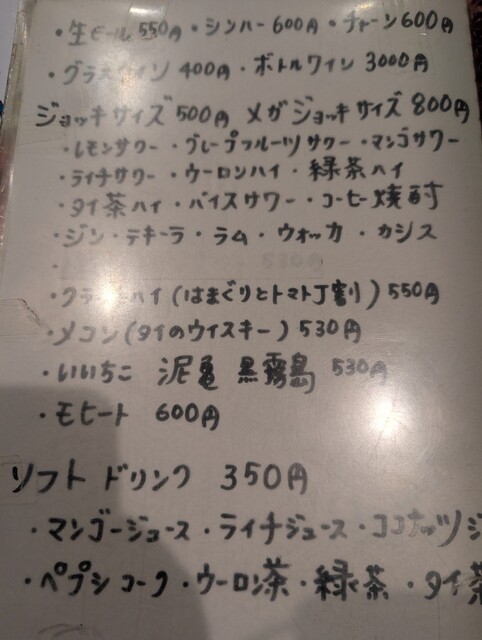 ・生ビール 550円・シンハー 600円・チャーン600円
・グラスワイン 400円・ボトルワイン 3000円
ジョッキサイズ 500円 メガジョッキサイズ 800円
・レモンサワー・グレープフルーツサワー・マンゴサワー
・ライチサワー・ウーロンハイ・緑茶ハイ
・タイ茶ハイ・バイスサワー・コーヒー焼酎
・ジン・テキーラ・ラム・ウォッカ・カシス
530円
ハイ(はまぐりとトマト割) 550円
・メコン(タイのウイスキー) 530円
・いいちこ 泥亀 黒霧島 530円
・モヒート 600円
ソフト ドリンク 350円
・マンゴージュース・ライチジュース・ココナッツジ
・ペプシコーク・ウーロン茶・緑茶・タイ茶